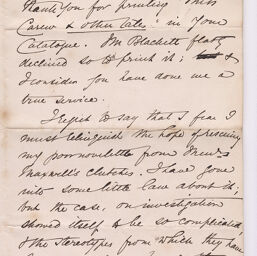 thank you for printing "Miss
Carew & other tales" in your
Catalogue. Mr Blackett flatly
declined so to print it; &
I consider you have done me a
true service.
I regret to say that I fear I
must relinquish the hope of rescuing
my poor novelette from Messrs
Maxwell's clutches. I have gone
into some little law about it;
but the case, on investigation
showed itself to be so complicated,
& the stereotypes from which they have